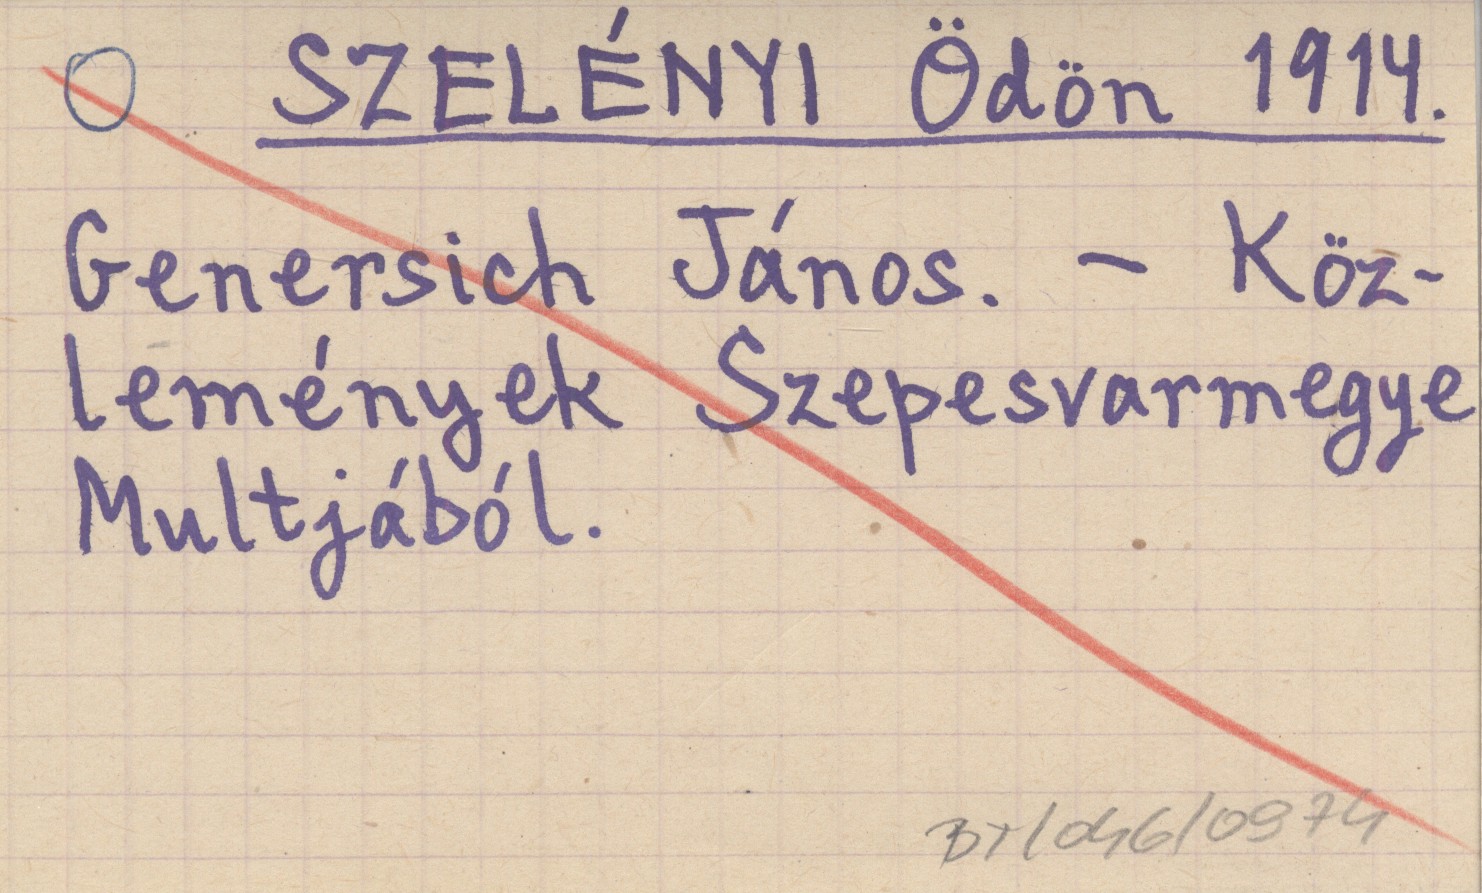 O SZELÉNYI Ödön 1914.
Genersich János. - Köz-
lemények Szepesvarmegye
Multjából.
BT/046/0974